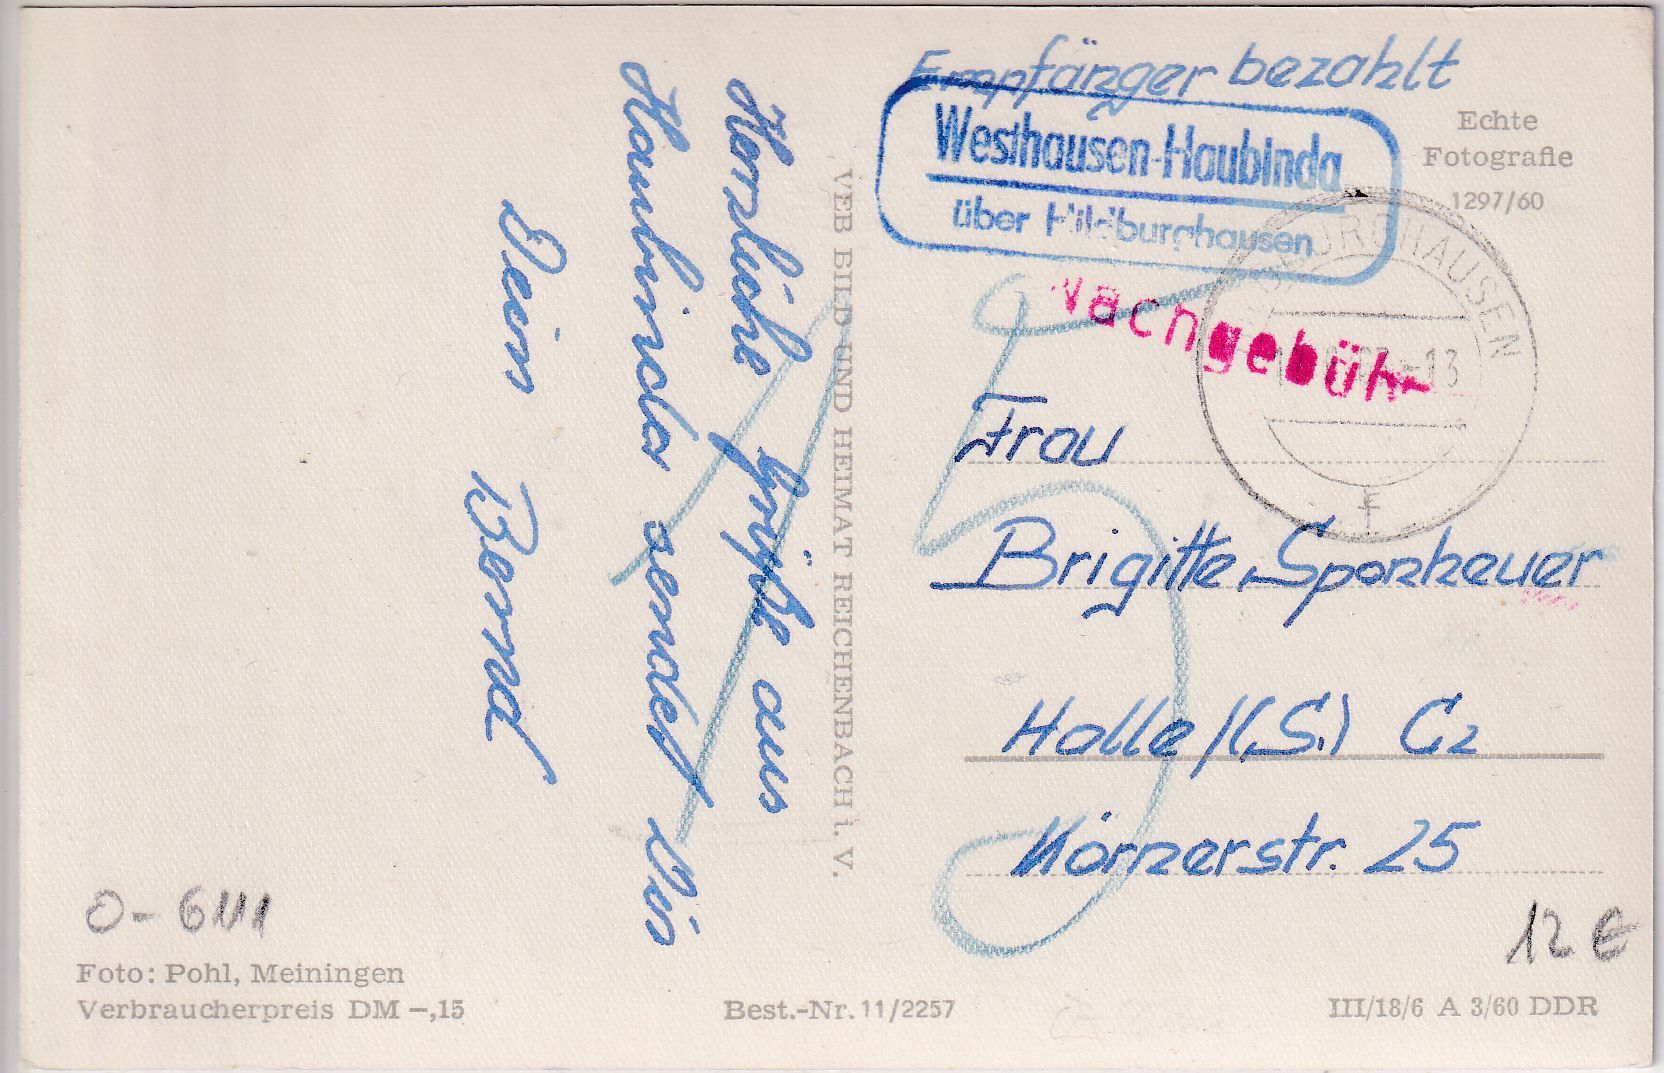 Empfänger bezahlt
Westhausen-Haubinda
über Hildburghausen
Echte
Fotografie
1297/60
HILDBURGHAUSEN
13
F
Nachgebühr
5
Frau
Brigitte Sponheuer
Halle/(S.) C2
Körnerstr. 25
Herzliche Grüße aus
Haubinda sendet Dir
Dein Bernd
VEB BILD UND HEIMAT REICHENBACH i. V.
O-6111
12 €
Foto: Pohl, Meiningen
Verbraucherpreis DM –,15
Best.-Nr. 11/2257
III/18/6 A 3/60 DDR